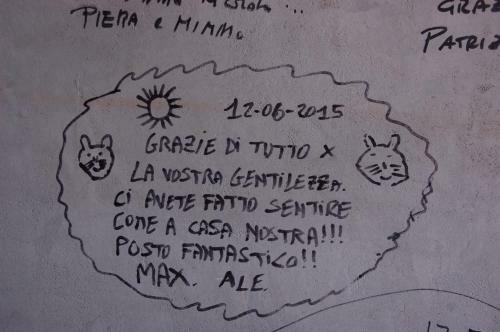 PIERA e MIMMO
GRAZ
PATRIZ
12-06-2015
GRAZIE DI TUTTO X
LA VOSTRA GENTILEZZA.
CI AVETE FATTO SENTIRE
COME A CASA NOSTRA!!!
POSTO FANTASTICO!!
MAX. ALE.